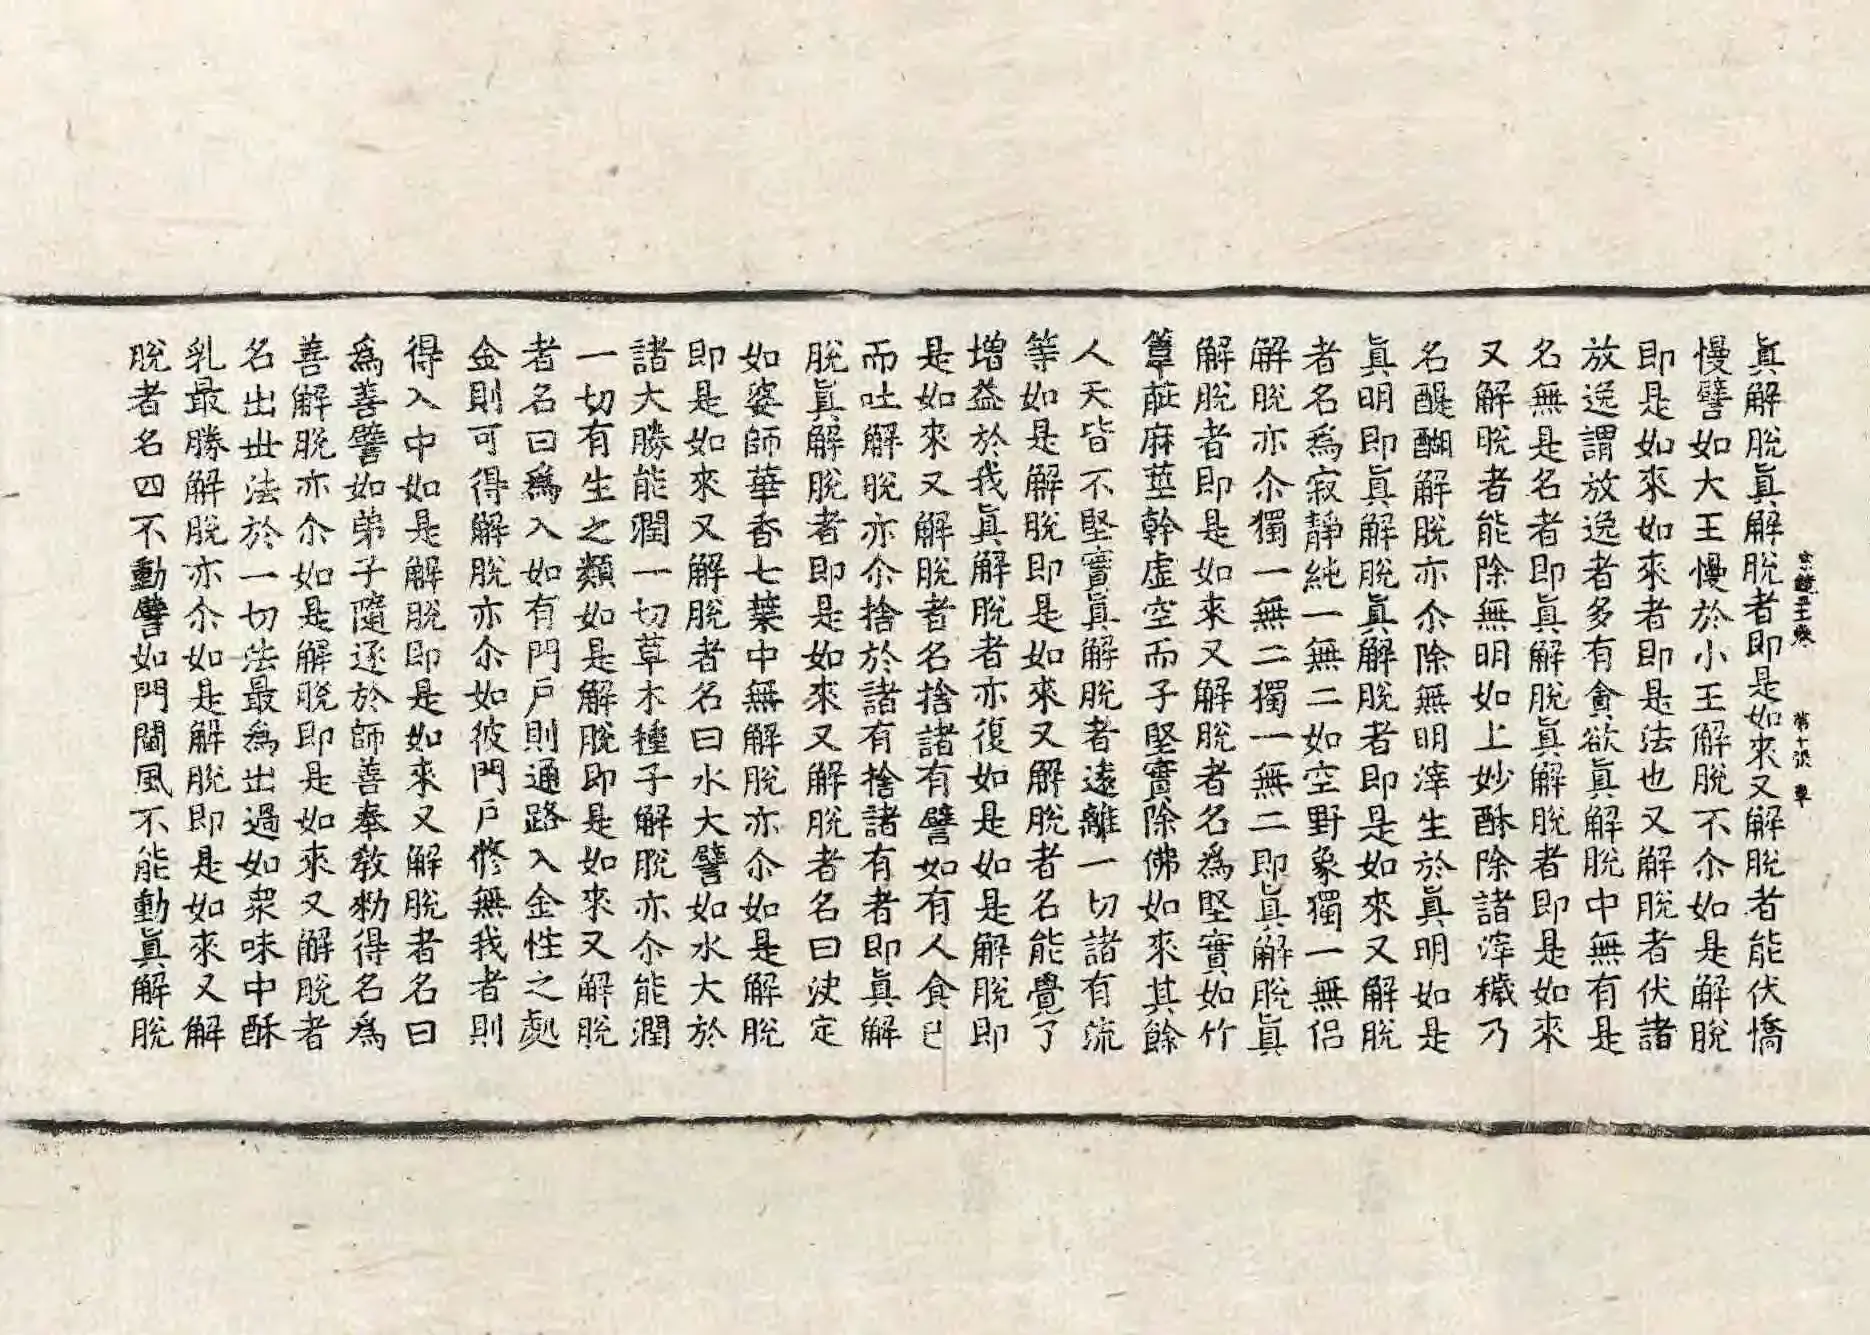 眞解脫眞解脫者即是如來又解脫者能伏憍
慢譬如大王慢於小王解脫不尒如是解脫
即是如來如來者即是法也又解脫者伏諸
放逸謂放逸者多有貪欲眞解脫中無有是
名無是名者即眞解脫眞解脫者即是如來
又解脫者能除無明如上妙酥除諸滓穢乃
名醍醐解脫亦尒除無明滓生於眞明如是
眞明即眞解脫眞解脫者即是如來又解脫
者名爲寂靜純一無二如空野象獨一無侶
解脫亦尒獨一無二獨一無二即眞解脫眞
解脫者即是如來又解脫者名爲堅實如竹
葦𦯶麻莖幹虛空而子堅實除佛如來其餘
人天皆不堅實眞解脫者遠離一切諸有流
等如是解脫即是如來又解脫者名能覺了
增益於我眞解脫者亦復如是如是解脫即
是如來又解脫者名捨諸有譬如有人食已
而吐解脫亦尒捨於諸有捨諸有者即眞解
脫眞解脫者即是如來又解脫者名曰決定
如婆師華香七葉中無解脫亦尒如是解脫
即是如來又解脫者名曰水大譬如水大於
諸大勝能潤一切草木種子解脫亦尒能潤
一切有生之類如是解脫即是如來又解脫
者名曰爲入如有門戶則通路入金性之處
金則可得解脫亦尒如彼門戶脩無我者則
得入中如是解脫即是如來又解脫者名曰
爲善譬如弟子隨逐於師善奉教勑得名爲
善解脫亦尒如是解脫即是如來又解脫者
名出世法於一切法最爲出過如衆味中酥
乳最勝解脫亦尒如是解脫即是如來又解
脫者名曰不動譬如門閫風不能動眞解脫